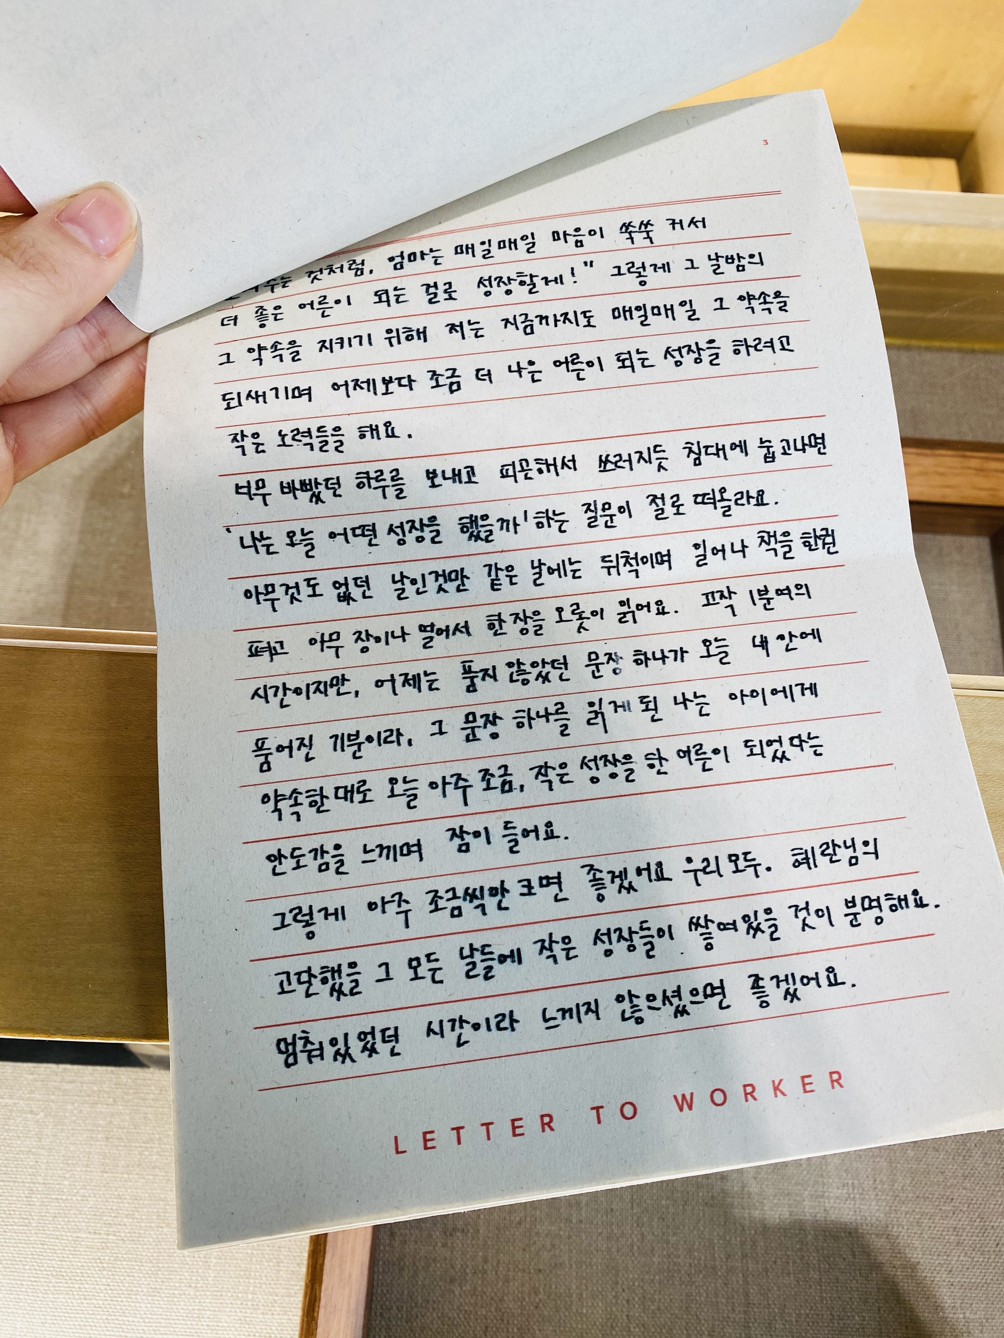 3
것처럼, 엄마는 매일매일 마음이 쑥쑥 커서
더 좋은 어른이 되는 걸로 성장할게!" 그렇게 그 날밤의
그 약속을 지키기 위해 저는 지금까지도 매일매일 그 약속을
되새기며 어제보다 조금 더 나은 어른이 되는 성장을 하려고
작은 노력들을 해요.
너무 바빴던 하루를 보내고 피곤해서 쓰러지듯 침대에 눕고나면
'나는 오늘 어떤 성장을 했을까'하는 질문이 절로 떠올라요.
아무것도 없던 날인것만 같은 날에는 뒤척이며 일어나 책을 한권
펴고 아무 장이나 열어서 한 장을 오롯이 읽어요. 고작 1분여의
시간이지만, 어제는 품지 않았던 문장 하나가 오늘 내 안에
품어진 기분이라, 그 문장 하나를 읽게 된 나는 아이에게
약속한대로 오늘 아주 조금, 작은 성장을 한 어른이 되었다는
안도감을 느끼며 잠이 들어요.
그렇게 아주 조금씩만 크면 좋겠어요 우리 모두. 혜란님의
고단했을 그 모든 날들에 작은 성장들이 쌓여있을 것이 분명해요.
멈춰있었던 시간이라 느끼지 않으셨으면 좋겠어요.
LETTER TO WORKER